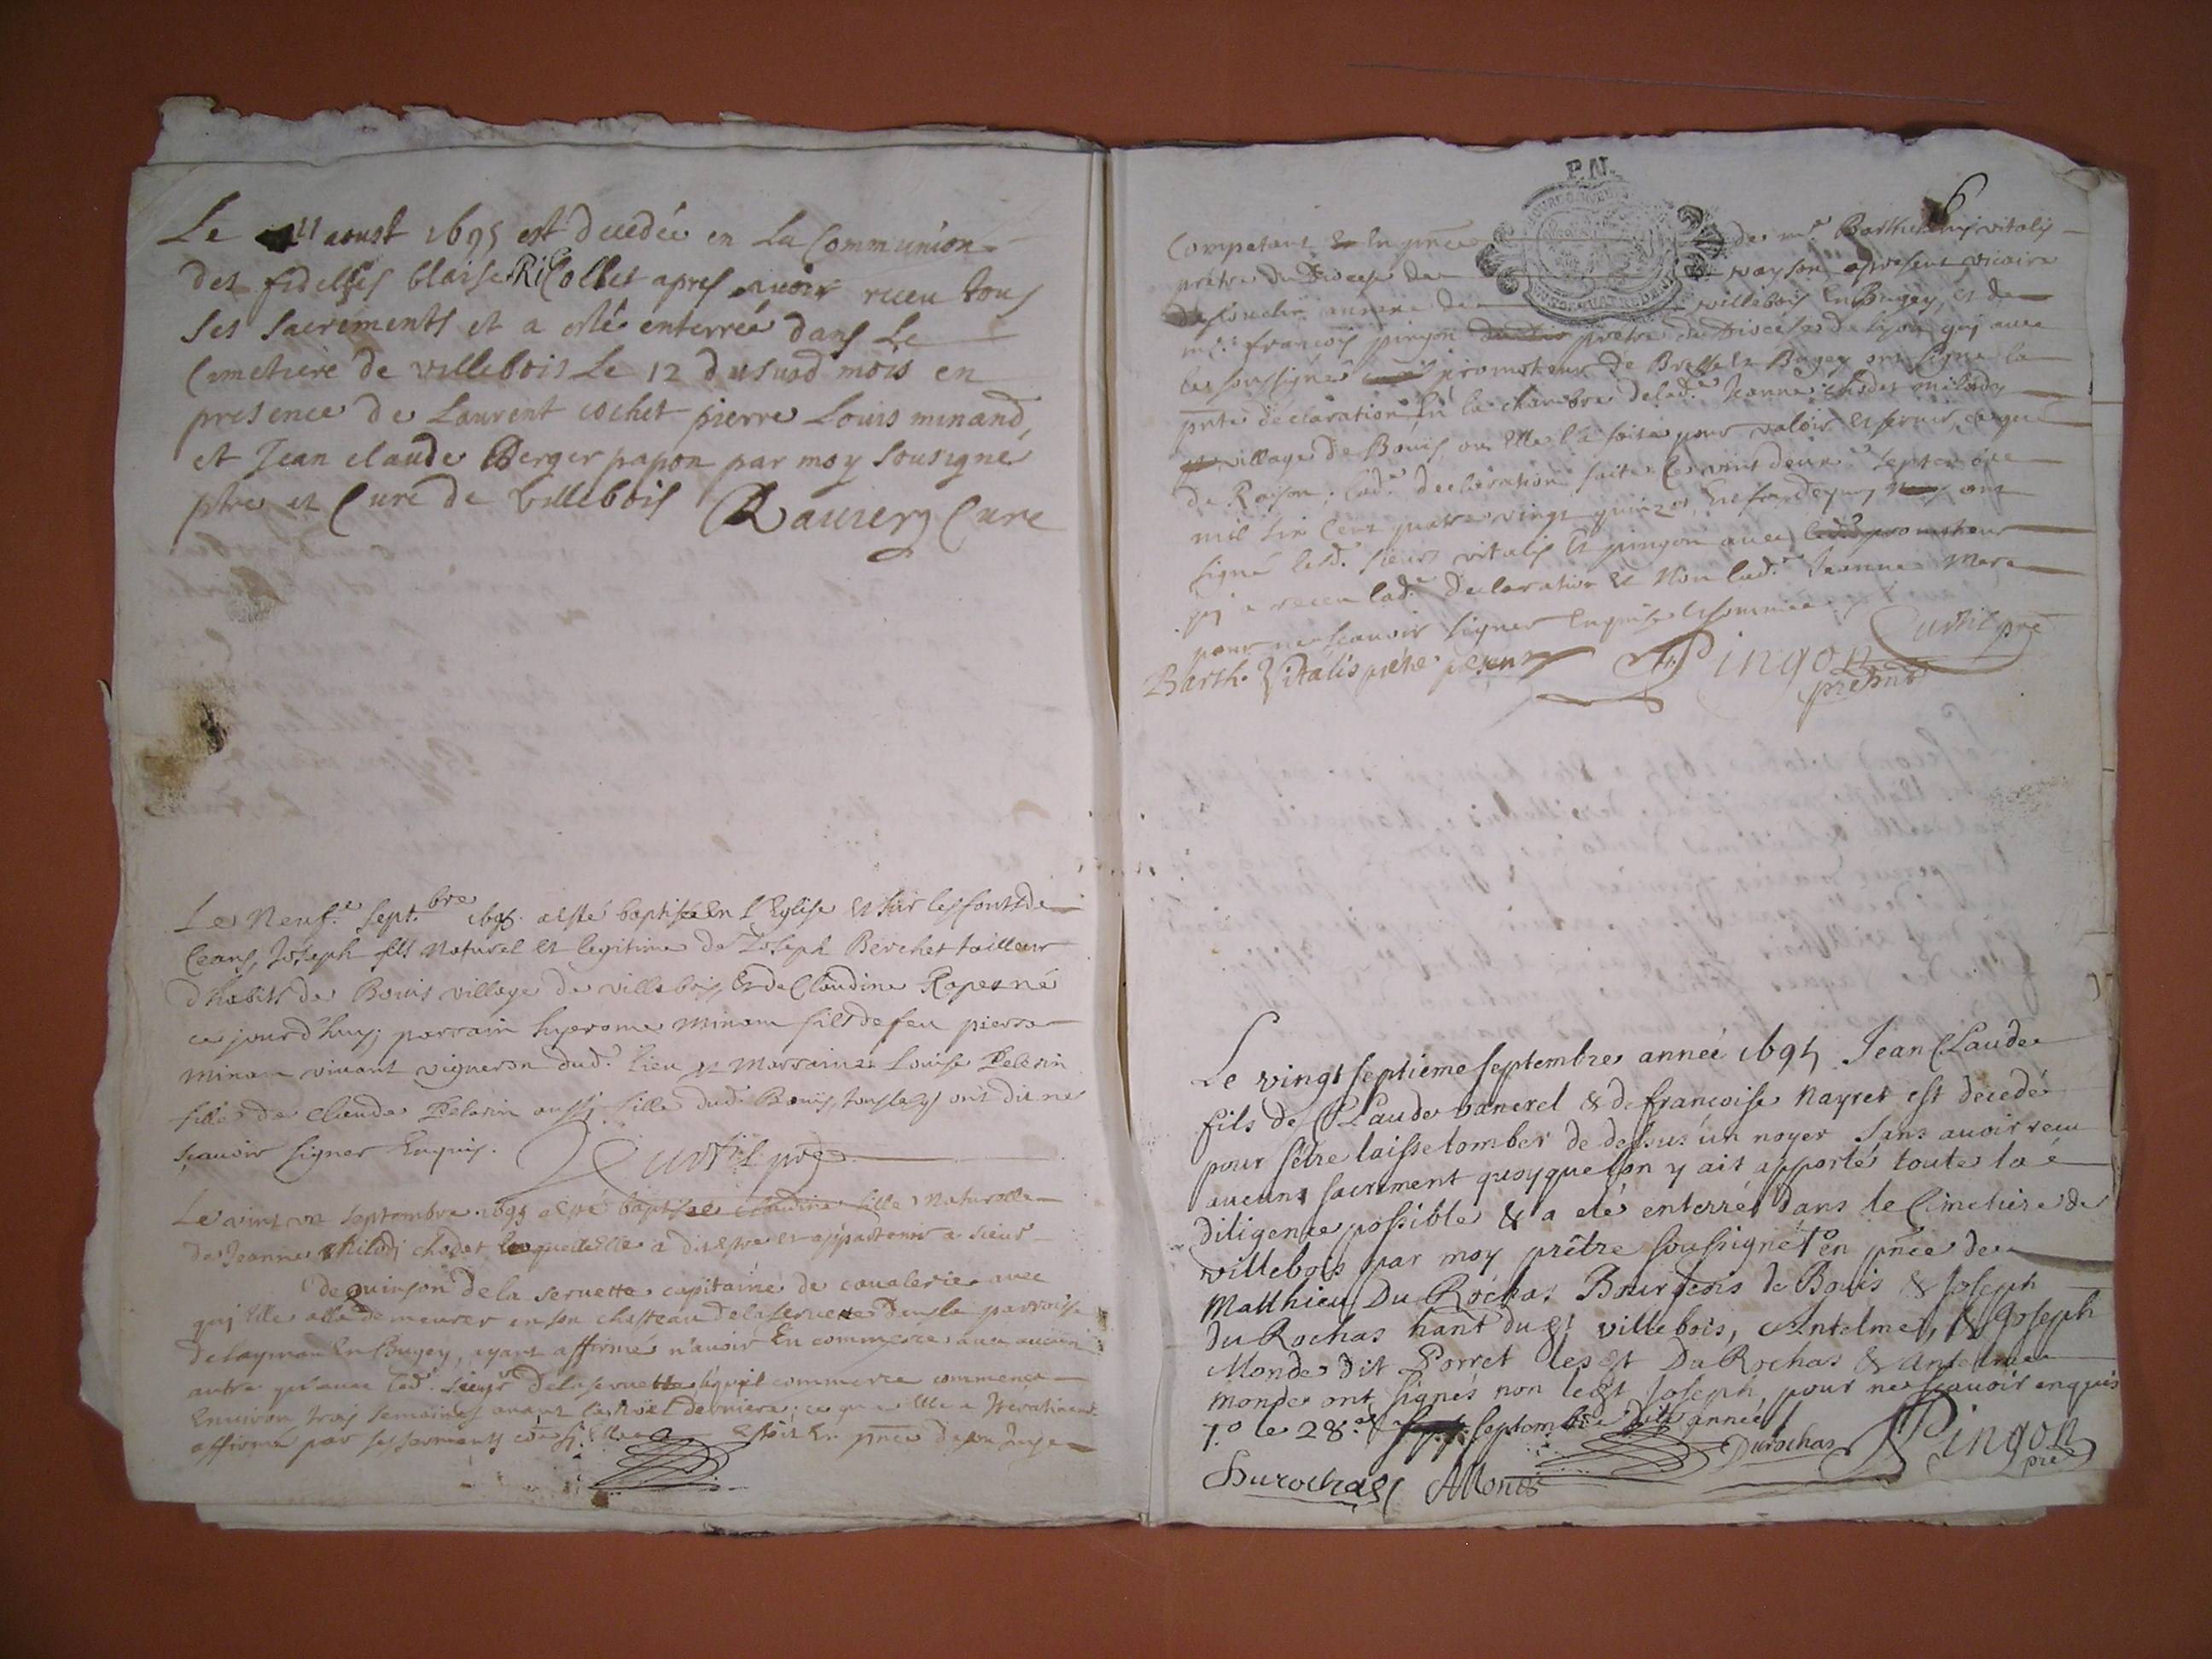 Le 11 aoust 1695 est decedée en La Communion
des fidelles blaise Ricollet apres avoir receu tous
ses sacrements et a esté enterrée dans Le
Cimetiere de villebois Le 12 dususd mois en
presence de Laurent cochet pierre Louis minand,
et Jean claude Berger papon par moy sousigné
ptre et Curé de villebois Ravierz Cure
Le Neuf.e sept.bre 1695. a esté baptisé En L'Eglise et sur les fonts de
Ceans, Joseph fils Naturel et legitime de Joseph Berchet tailleur
d'habits de Bouis village de villebois, Et de Claudine Rapet né
ce jourd'huy; parrain hyerome Minam fils de feu pierre
Minam vivant vigneron dud. lieu et Marraine Louise Pelerin
fille de Claude Pelerin aussi fille dud. Bouis, tous lesq ont dit ne
sçavoir signer Enquis. Curtil pre
Le vint un septembre 1695 a esté baptisée claudine fille Naturelle
de Jeanne Milody chodet laquelle elle a dit estre et appartenir a sieur
de quinson de la servette capitaine de cavalerie avec
qui Elle alla demeurer en son chasteau de la servette dans la parroisse
de laymon En Bugey, ayant affirmé n'avoir En commerce avec aucun
autre qu'avec led. sieur de la servette, lequel commerce commença
Environ trois semaines avant la Noel derniere; ce que Elle a Iterativement
affirmé par ses serments côe si Elle Estoit En pnce de son Juge
P.N.
6
Competant Et En pnce de m.e Barthelemy vitalis
prêtre du Diocese de vayson a present vicaire
annexe de villebois En Bugey, et de
m.e francois pingon prêtre du Diocese de lyon qui avec
le soussigné promoteur de Bresse et Bugey ont signé la
pnte declaration En la chambre de lad.e Jeanne chodet milody
village de Bouis, ou Elle l'a faite pour valoir et servir, ce que
de Raison; lad.e declaration faite le vint deux.e septembre
mil six cent quatre vingt quinze, En foy dequoy ont
signé lesd. sieurs vitalis Et pingon avec led. promoteur
qui a receu lad.e declaration et Non lad.e Jeanne Mere
pour ne sçavoir signer Enquise Et sommée Curtil pre
Barth. Vitalis prêtre present Pingon
present
Le vingt septiéme septembre année 1695 Jean Claude
fils de Claude vanerel & de francoise Nayret est decedé
pour s'étre laisse tomber de dessus un noyer sans avoir receu
aucuns sacrement quoyque l'on y ait apporté toute la
diligence possible & a eté enterré dans le Cimetiere de
villebois par moy prêtre soussigné en pnce de
Matthieu Du Rochas Bourgeois de Bouis & Joseph
du Rochas hant dudt villebois, Antelme, & Joseph
Monde dit Porret lesdt Du Rochas & Antelme
monde ont signés non ledt Joseph, pour ne sçavoir enquis
1.o le 28.e septembre dite année
Durochas Pingon
pre
Durochas Monde